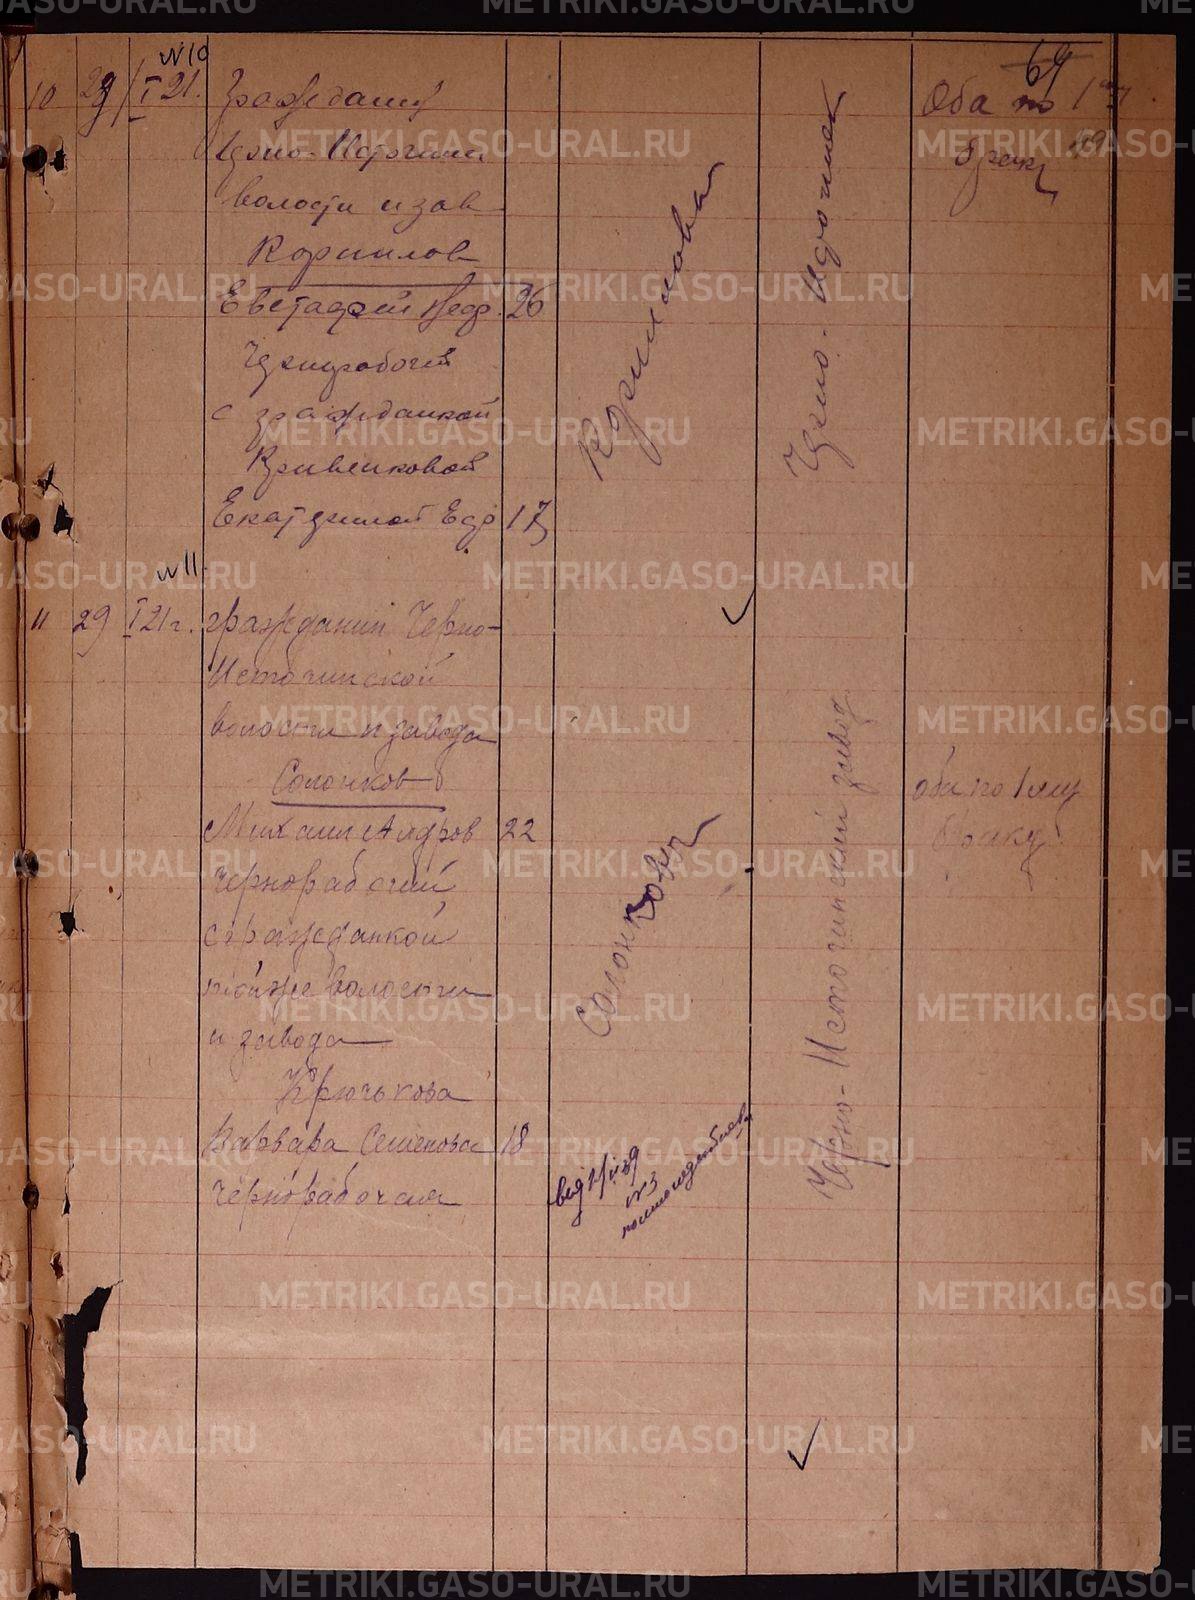 64
№10
10 29/I 21. Гражданин
Черно-Источин
волости и зав
Корнилов
Евстафий Фед. 26
Чернрабочий
с гражданкой
Кривенковой
Екатериной Едр 17
Корнилова
Черно-Источинск
Оба по 1му
браку
№11
11 29 I 21г. гражданин Черно-
Источинской
волости и завода
Солонков
Михаил Алдров 22
чернорабочий
с гражданкой
тойже волости
и завода
Крючькова
Варвара Семенова 18
чернорабочая
Солонковы
№3
Черно-Источинский завод
оба по 1му
браку
METRIKI.GASO-URAL.RU